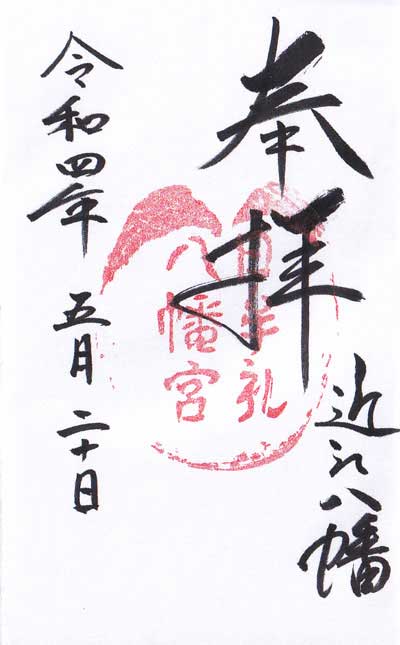 奉拝
近江八幡
日牟礼
八幡宮
令和四年 五月 二十日